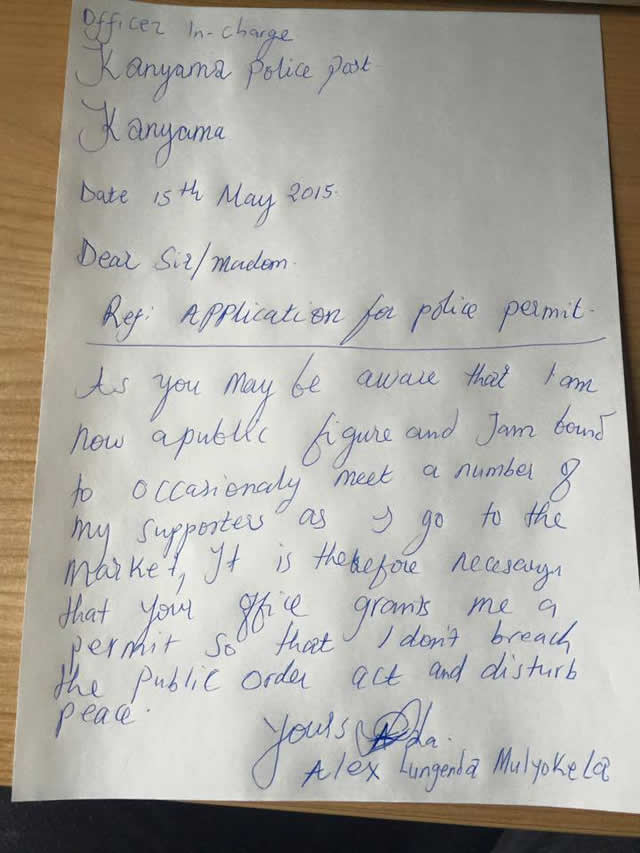 Officer In-charge
Kanyama Police Post
Kanyama
Date 15th May 2015.
Dear Sir/Madam.
Ref: APPlication for police permit.
As you may be aware that I am
now a public figure and I am bound
to occasionaly meet a number of
my supporters as I go to the
Market, It is therefore necesary
that your office grants me a
permit so that I don't breach
the Public Order act and disturb
peace.
Yours
Alex Lungenda Mulyokela